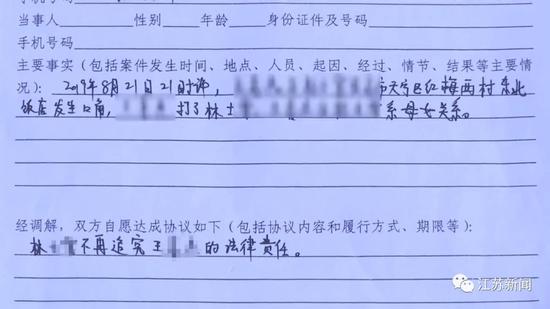 手机号码
当事人 性别 年龄 身份证件及号码
手机号码
主要事实(包括案件发生时间、地点、人员、起因、经过、情节、结果等主要情
况):2019年8月21日21时许, 市天宁区红梅西村东北
饭店发生口角, 打了林士 系母女关系。
经调解,双方自愿达成协议如下(包括协议内容和履行方式、期限等):
林 不再追究王 的法律责任。
江苏新闻